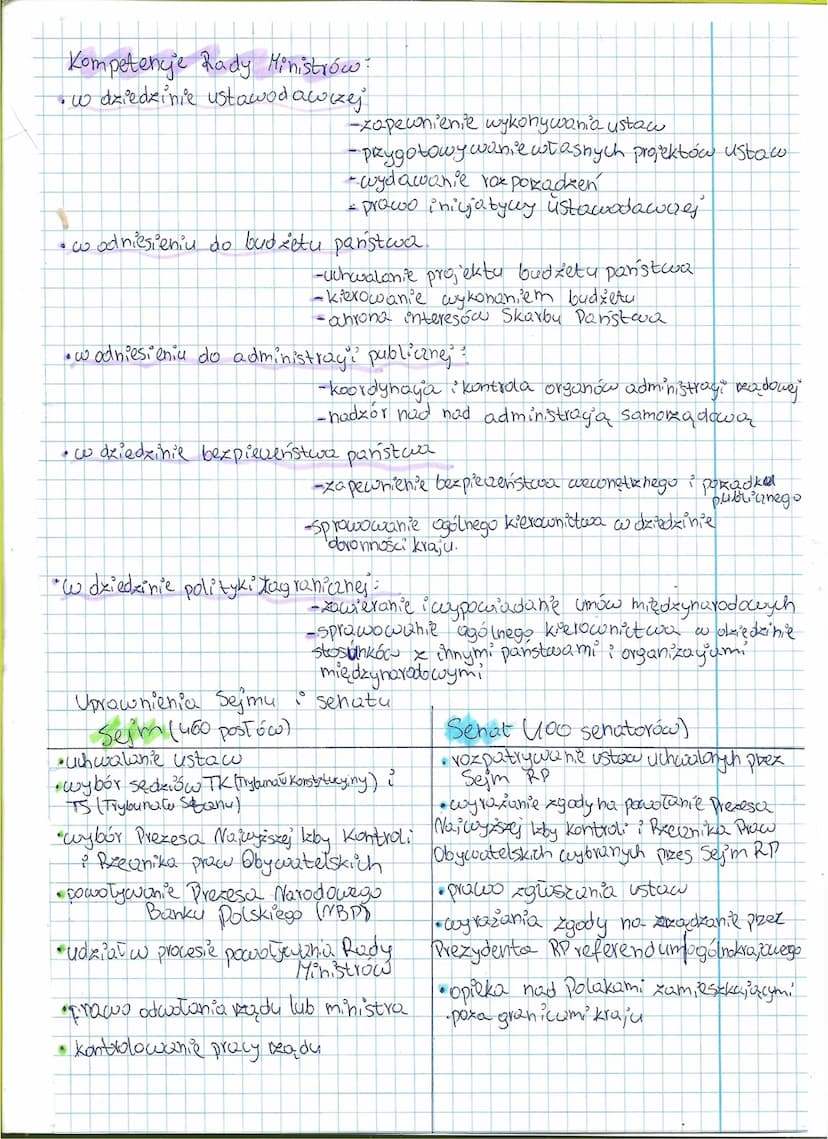 Kompetencje Rady Ministrów:
• w dziedzinie ustawodawczej
- zapewnienie wykonywania ustaw
- przygotowywanie własnych projektów ustaw
- wydawanie rozporządzeń
- prawo inicjatywy ustawodawczej
• w odniesieniu do budżetu państwa.
- uchwalanie projektu budżetu państwa
- kierowanie wykonaniem budżetu
- ochrona interesów Skarbu Państwa
• w odniesieniu do administracji publicznej:
- koordynacja i kontrola organów administracji rządowej
- nadzór nad nad administracją samorządową
• w dziedzinie bezpieczeństwa państwa
- zapewnienie bezpieczeństwa wewnętrznego i porządku
publicznego
- sprawowanie ogólnego kierownictwa w dziedzinie
obronności kraju.
• w dziedzinie polityki zagranicznej:
- zawieranie i wypowiadanie umów międzynarodowych
- sprawowanie ogólnego kierownictwa w dziedzinie
stosunków z innymi państwami i organizacjami
międzynarodowymi
Uprawnienia Sejmu i senatu
Sejm (460 posłów)
• uchwalanie ustaw
• wybór sędziów TK (Trybunał Konstytucyjny) i
TS (Trybunału Stanu)
• wybór Prezesa Najwyższej Izby Kontroli
i Rzecznika praw Obywatelskich
• powoływanie Prezesa Narodowego
Banku Polskiego (NBP)
• udział w procesie powoływania Rady
Ministrów
• prawo odwołania rządu lub ministra
• kontrolowanie pracy rządu
Senat (100 senatorów)
• rozpatrywanie ustaw uchwalonych przez
Sejm RP
• wyrażanie zgody na powołanie Prezesa
Najwyższej Izby Kontroli i Rzecznika Praw
Obywatelskich wybranych przez Sejm RP
• prawo zgłuszania ustaw
• wyrażania zgody na zarządzanie przez
Prezydenta RP referendum ogólnokrajowego
• opieka nad Polakami zamieszkającymi
poza granicami kraju